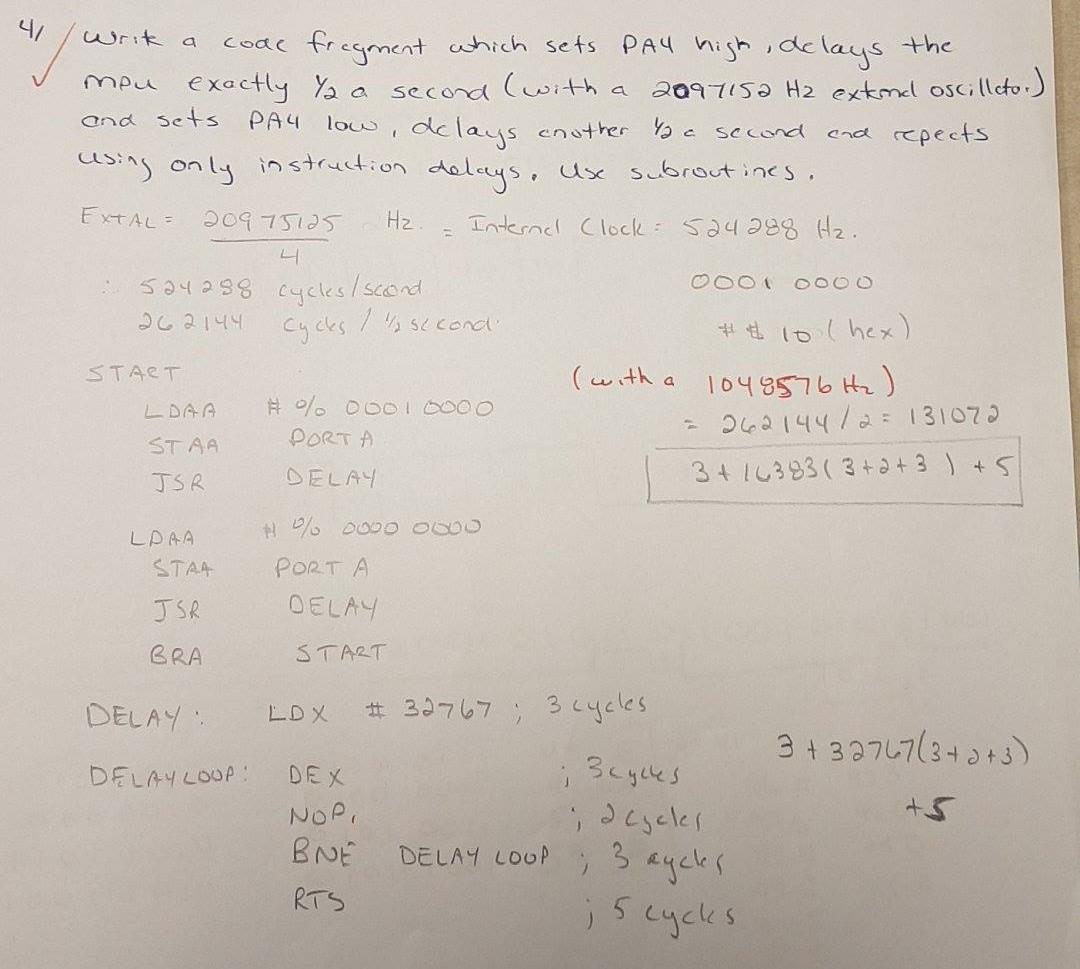 4/ Write a code fragment which sets PA4 high, delays the
mpu exactly 1/2 a second (with a 2097152 Hz external oscillator)
and sets PA4 low, delays another 1/2 a second and repeats
using only instruction delays. Use subroutines.
EXTAL = 20975125 Hz. = Internal Clock = 524288 Hz.
4
∴ 524288 cycles/second
0001 0000
262144 cycles / 1/2 second.
# $ 10 (hex)
START
(with a 1048576 Hz)
LDAA # % 0001 0000
= 262144 / 2 = 131072
STAA PORT A
3 + 16383 ( 3 + 2 + 3 ) + 5
JSR DELAY
LDAA # % 0000 0000
STAA PORT A
JSR DELAY
BRA START
DELAY : LDX # 32767 ; 3 cycles
3 + 32767 (3+2+3)
DELAYLOOP : DEX ; 3 cycles
+5
NOP. ; 2 cycles
BNE DELAY LOOP ; 3 cycles
RTS ; 5 cycles